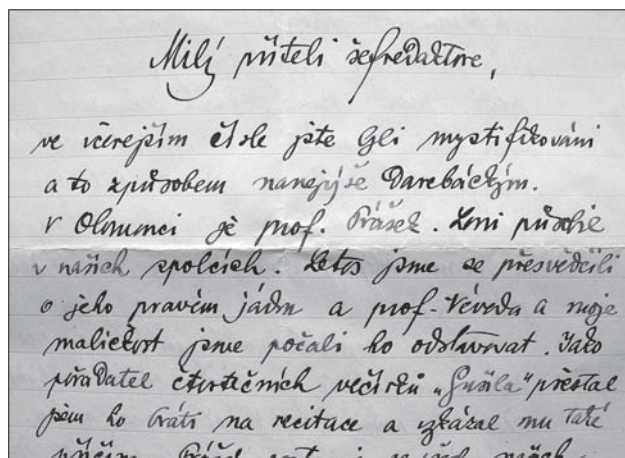 Milý příteli šefredaktore,
ve včerejším čísle jste byli mystifikováni
a to způsobem nanejvýše darebáckým.
V Olomouci je prof. Prášek. Loni působil
v našich spolcích. Letos jsme se přesvědčili
o jeho pravém jádru a prof. Vévoda a moje
maličkost jsme počali ho odstavovat. Jako
pořadatel čtvrtečních večírků „Sušila" přestal
jsem ho bráti na recitace a vzkázal mu také
příčinu. Prášek